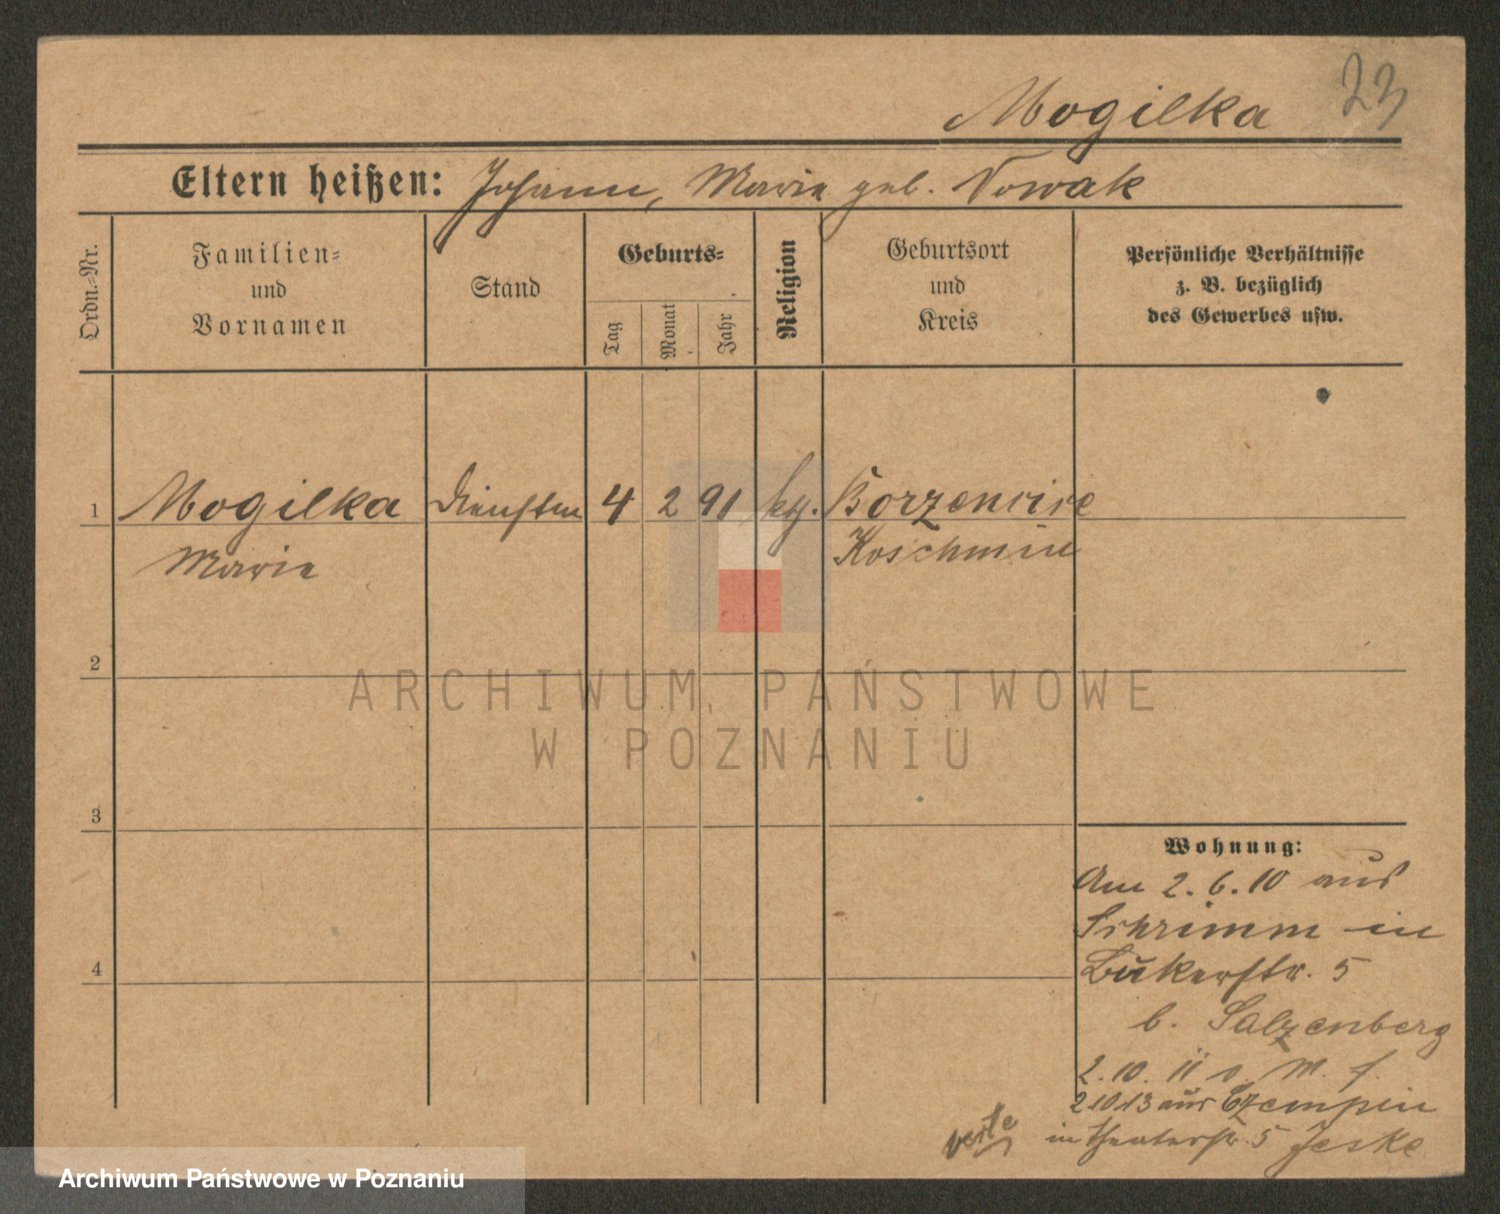 Mogilka 23
Eltern heißen: Johann, Marie geb. Nowak
Ordn.=Nr.
Familien=
und
Vornamen
Stand
Geburts=
Tag
Monat
Jahr
Religion
Geburtsort
und
Kreis
Persönliche Verhältnisse
z. B. bezüglich
des Gewerbes usw.
1 Mogilka 4 2 91 kth. Borzencice
Marie Koschmin
2
ARCHIWUM PAŃSTWOWE
W POZNANIU
3
Wohnung:
Am 2.6.10 aus
Schrimm in
Bukerstr. 5
4
b. Salzenberg
2.10.11 v. M. f.
2 10 13 aus Czempin
in Theaterstr. 5 Jeske
verte
Archiwum Państwowe w Poznaniu